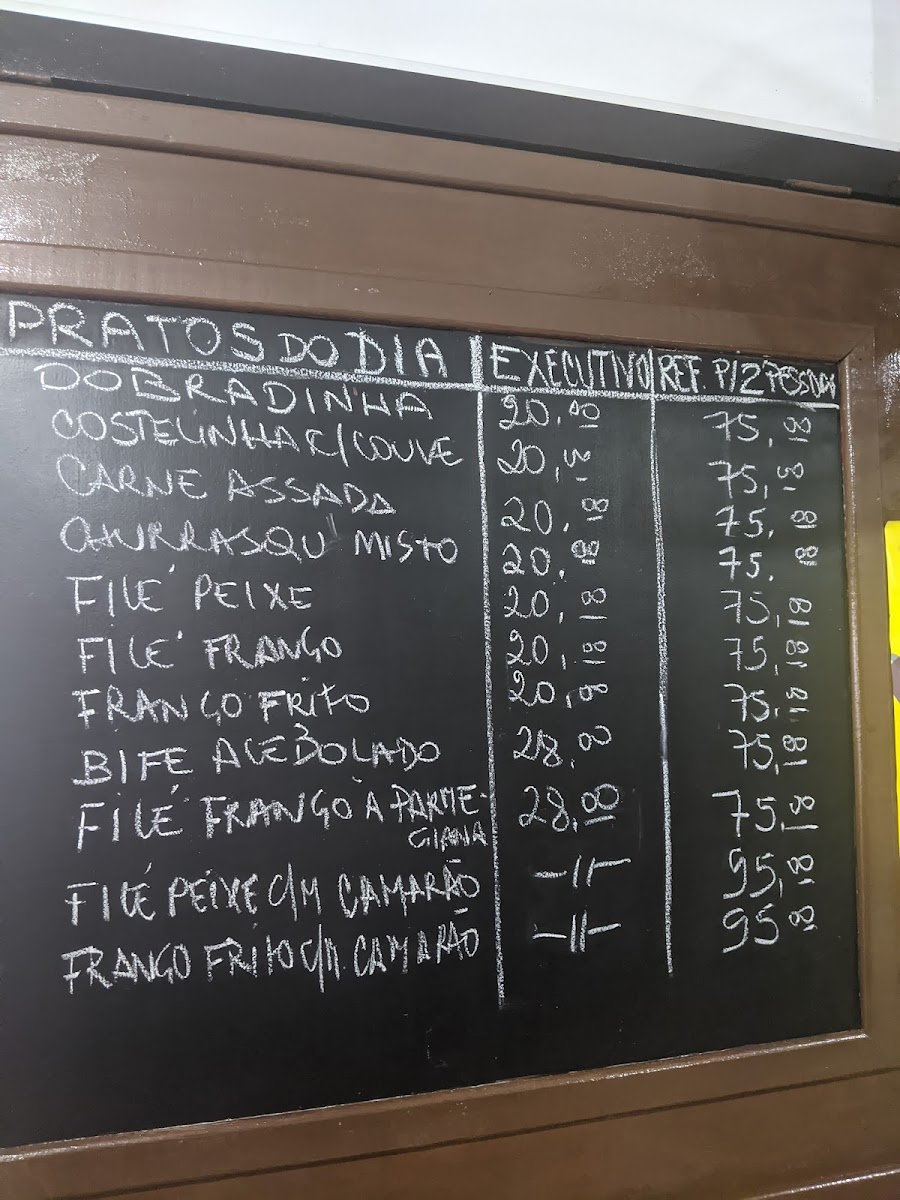 PRATOS DO DIA EXECUTIVO REF. P/2 PESSOAS
DOBRADINHA 20,00 75,00
COSTELINHA C/COUVE 20,00 75,00
CARNE ASSADA 20,00 75,00
CHURRASQU MISTO 20,00 75,00
FILÉ PEIXE 20,00 75,00
FILÉ FRANGO 20,00 75,00
FRANGO FRITO 20,00 75,00
BIFE ACEBOLADO 28,00 75,00
FILÉ FRANGO À PARME- 28,00 75,00
GIANA
FILÉ PEIXE C/M CAMARÃO -11- 95,00
FRANGO FRITO C/M CAMARÃO -11- 95,00